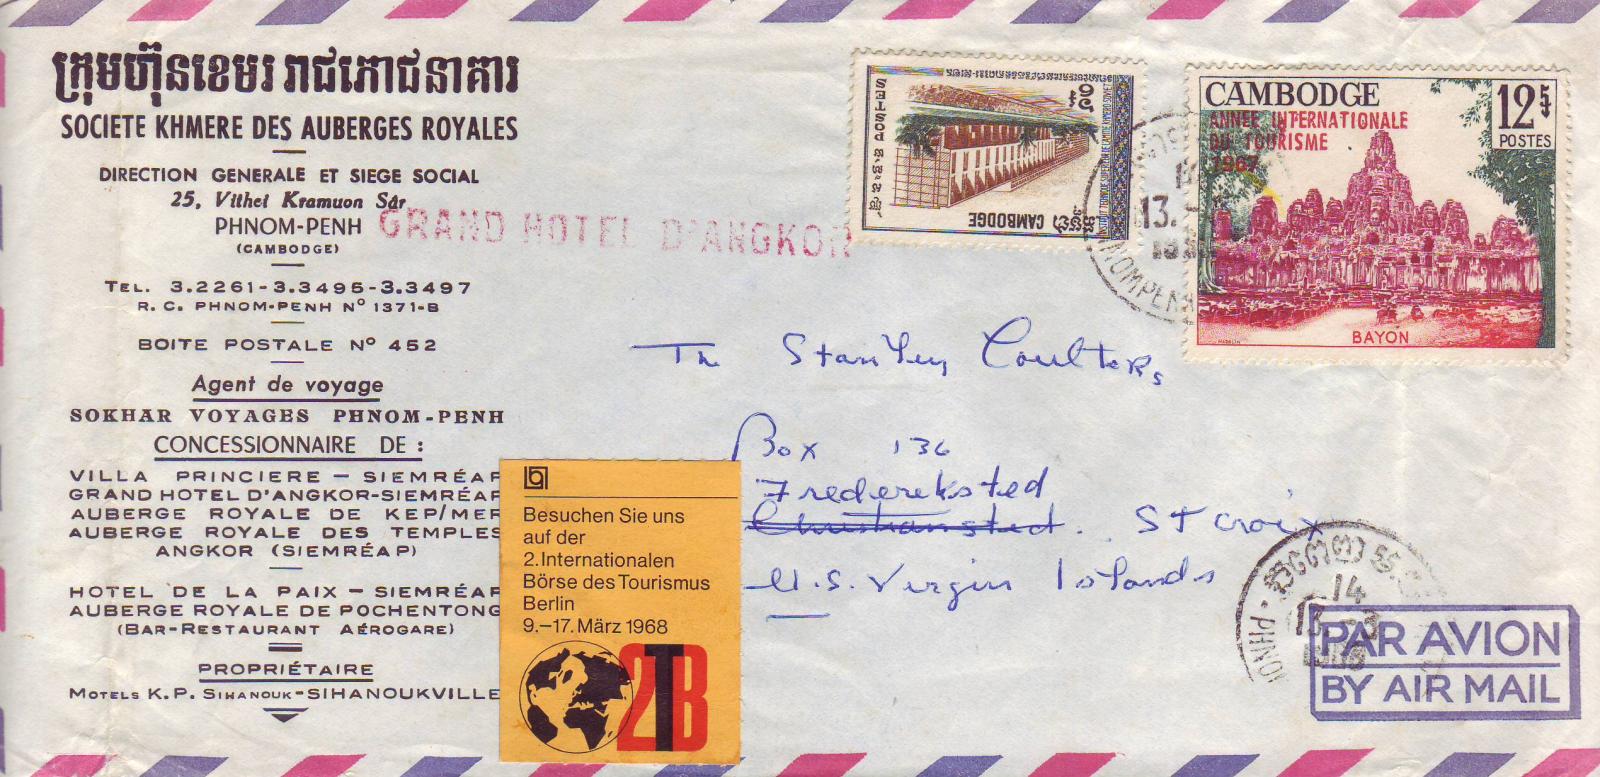 ក្រុមហ៊ុនខេមរ រាជភោជនាគារ
SOCIETE KHMERE DES AUBERGES ROYALES
DIRECTION GENERALE ET SIEGE SOCIAL
25, Vithei Kramuon Sâr
PHNOM-PENH
(CAMBODGE)
GRAND HOTEL D'ANGKOR
TEL. 3.2261-3.3495-3.3497
R. C. PHNOM-PENH N° 1371-B
BOITE POSTALE N° 452
Agent de voyage
SOKHAR VOYAGES PHNOM-PENH
CONCESSIONNAIRE DE :
VILLA PRINCIERE - SIEMRÉAP
GRAND HOTEL D'ANGKOR-SIEMRÉAP
AUBERGE ROYALE DE KEP/MER
AUBERGE ROYALE DES TEMPLES
ANGKOR (SIEMRÉAP)
HOTEL DE LA PAIX - SIEMRÉAP
AUBERGE ROYALE DE POCHENTONG
(BAR-RESTAURANT AÉROGARE)
PROPRIÉTAIRE
MOTELS K.P. SIHANOUK-SIHANOUKVILLE
Besuchen Sie uns
auf der
2. Internationalen
Börse des Tourismus
Berlin
9.–17. März 1968
ITB
POSTES
CAMBODGE
CAMBODGE
12 5
POSTES
ANNEE INTERNATIONALE
DU TOURISME
1967
BAYON
13.
The Stanley Coulters
Box 136
Frederiksted
Christiansted. St Croix
U.S. Virgin Islands
14
13 -3
PHNOM
PAR AVION
BY AIR MAIL